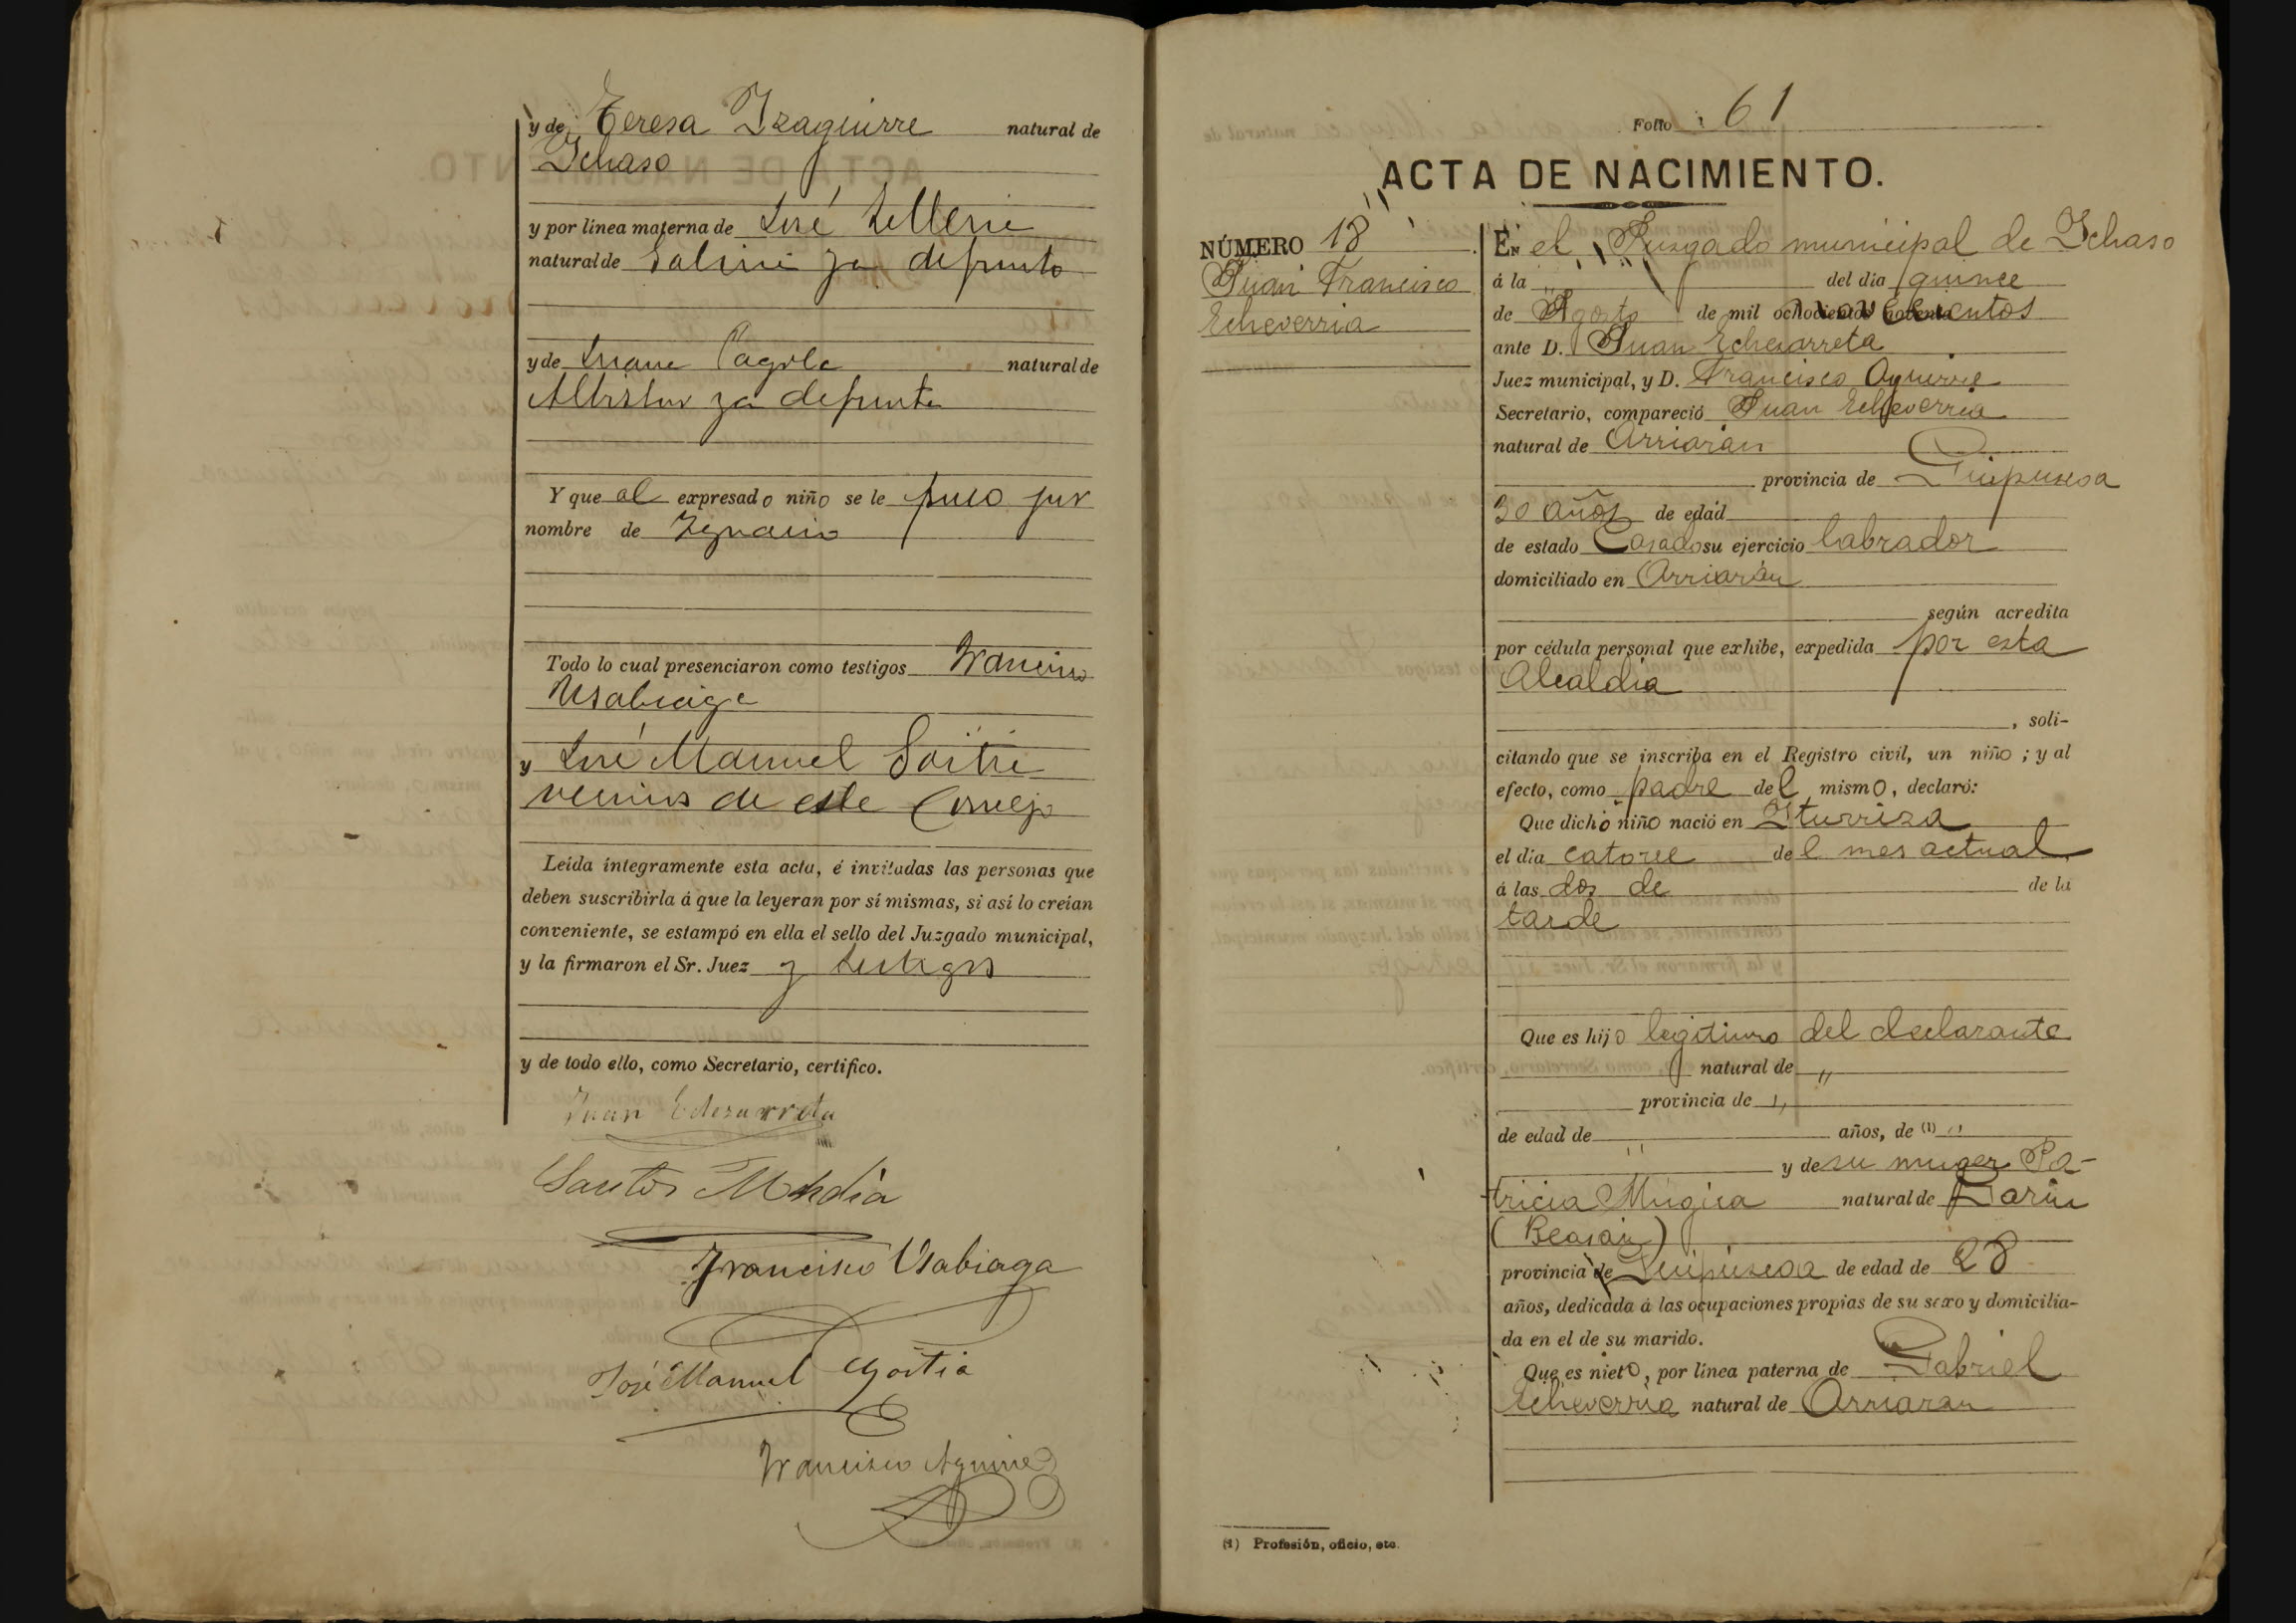 y de Teresa Yzaguirre natural de
Ychaso
y por línea materna de José Telleria
natural de Salinas ya difunto
y de Juana Pagola natural de
Albistur ya difunta
Y que al expresado niño se le puso por
nombre de Ygnacio
Todo lo cual presenciaron como testigos Francisco
Usabiaga
y José Manuel Goitia
vecinos de este Concejo
Leída íntegramente esta acta, é invitadas las personas que
deben suscribirla á que la leyeran por sí mismas, si así lo creían
conveniente, se estampó en ella el sello del Juzgado municipal,
y la firmaron el Sr. Juez y testigos
y de todo ello, como Secretario, certifico.
Juan Echezarreta
Santos Mendia
Francisco Usabiaga
José Manuel Goitia
Francisco Aguirre
Folio 61
ACTA DE NACIMIENTO.
NÚMERO 18
Juan Francisco
Echeverria
En el Juzgado municipal de Ychaso
á la " del día quince
de Agosto de mil novecientos
ante D. Juan Echezarreta
Juez municipal, y D. Francisco Aguirre
Secretario, compareció Juan Echeverria
natural de Arriarán
provincia de Guipuzcoa
30 años de edad
de estado Casado su ejercicio labrador
domiciliado en Arriarán
según acredita
por cédula personal que exhibe, expedida por esta
Alcaldia
, soli-
citando que se inscriba en el Registro civil, un niño ; y al
efecto, como padre del mismo, declaró:
Que dicho niño nació en Yturriza
el día catorce del mes actual
á las dos de de la
tarde
Que es hijo legitimo del declarante
natural de "
provincia de "
de edad de " años, de (1) "
y de su muger Pa-
tricia Múgica natural de Garin
(Beasain)
provincia de Guipúzcoa de edad de 28
años, dedicada á las ocupaciones propias de su sexo y domicilia-
da en el de su marido.
Que es nieto, por línea paterna de Gabriel
Echeverria natural de Arriaran
(1) Profesión, oficio, etc.